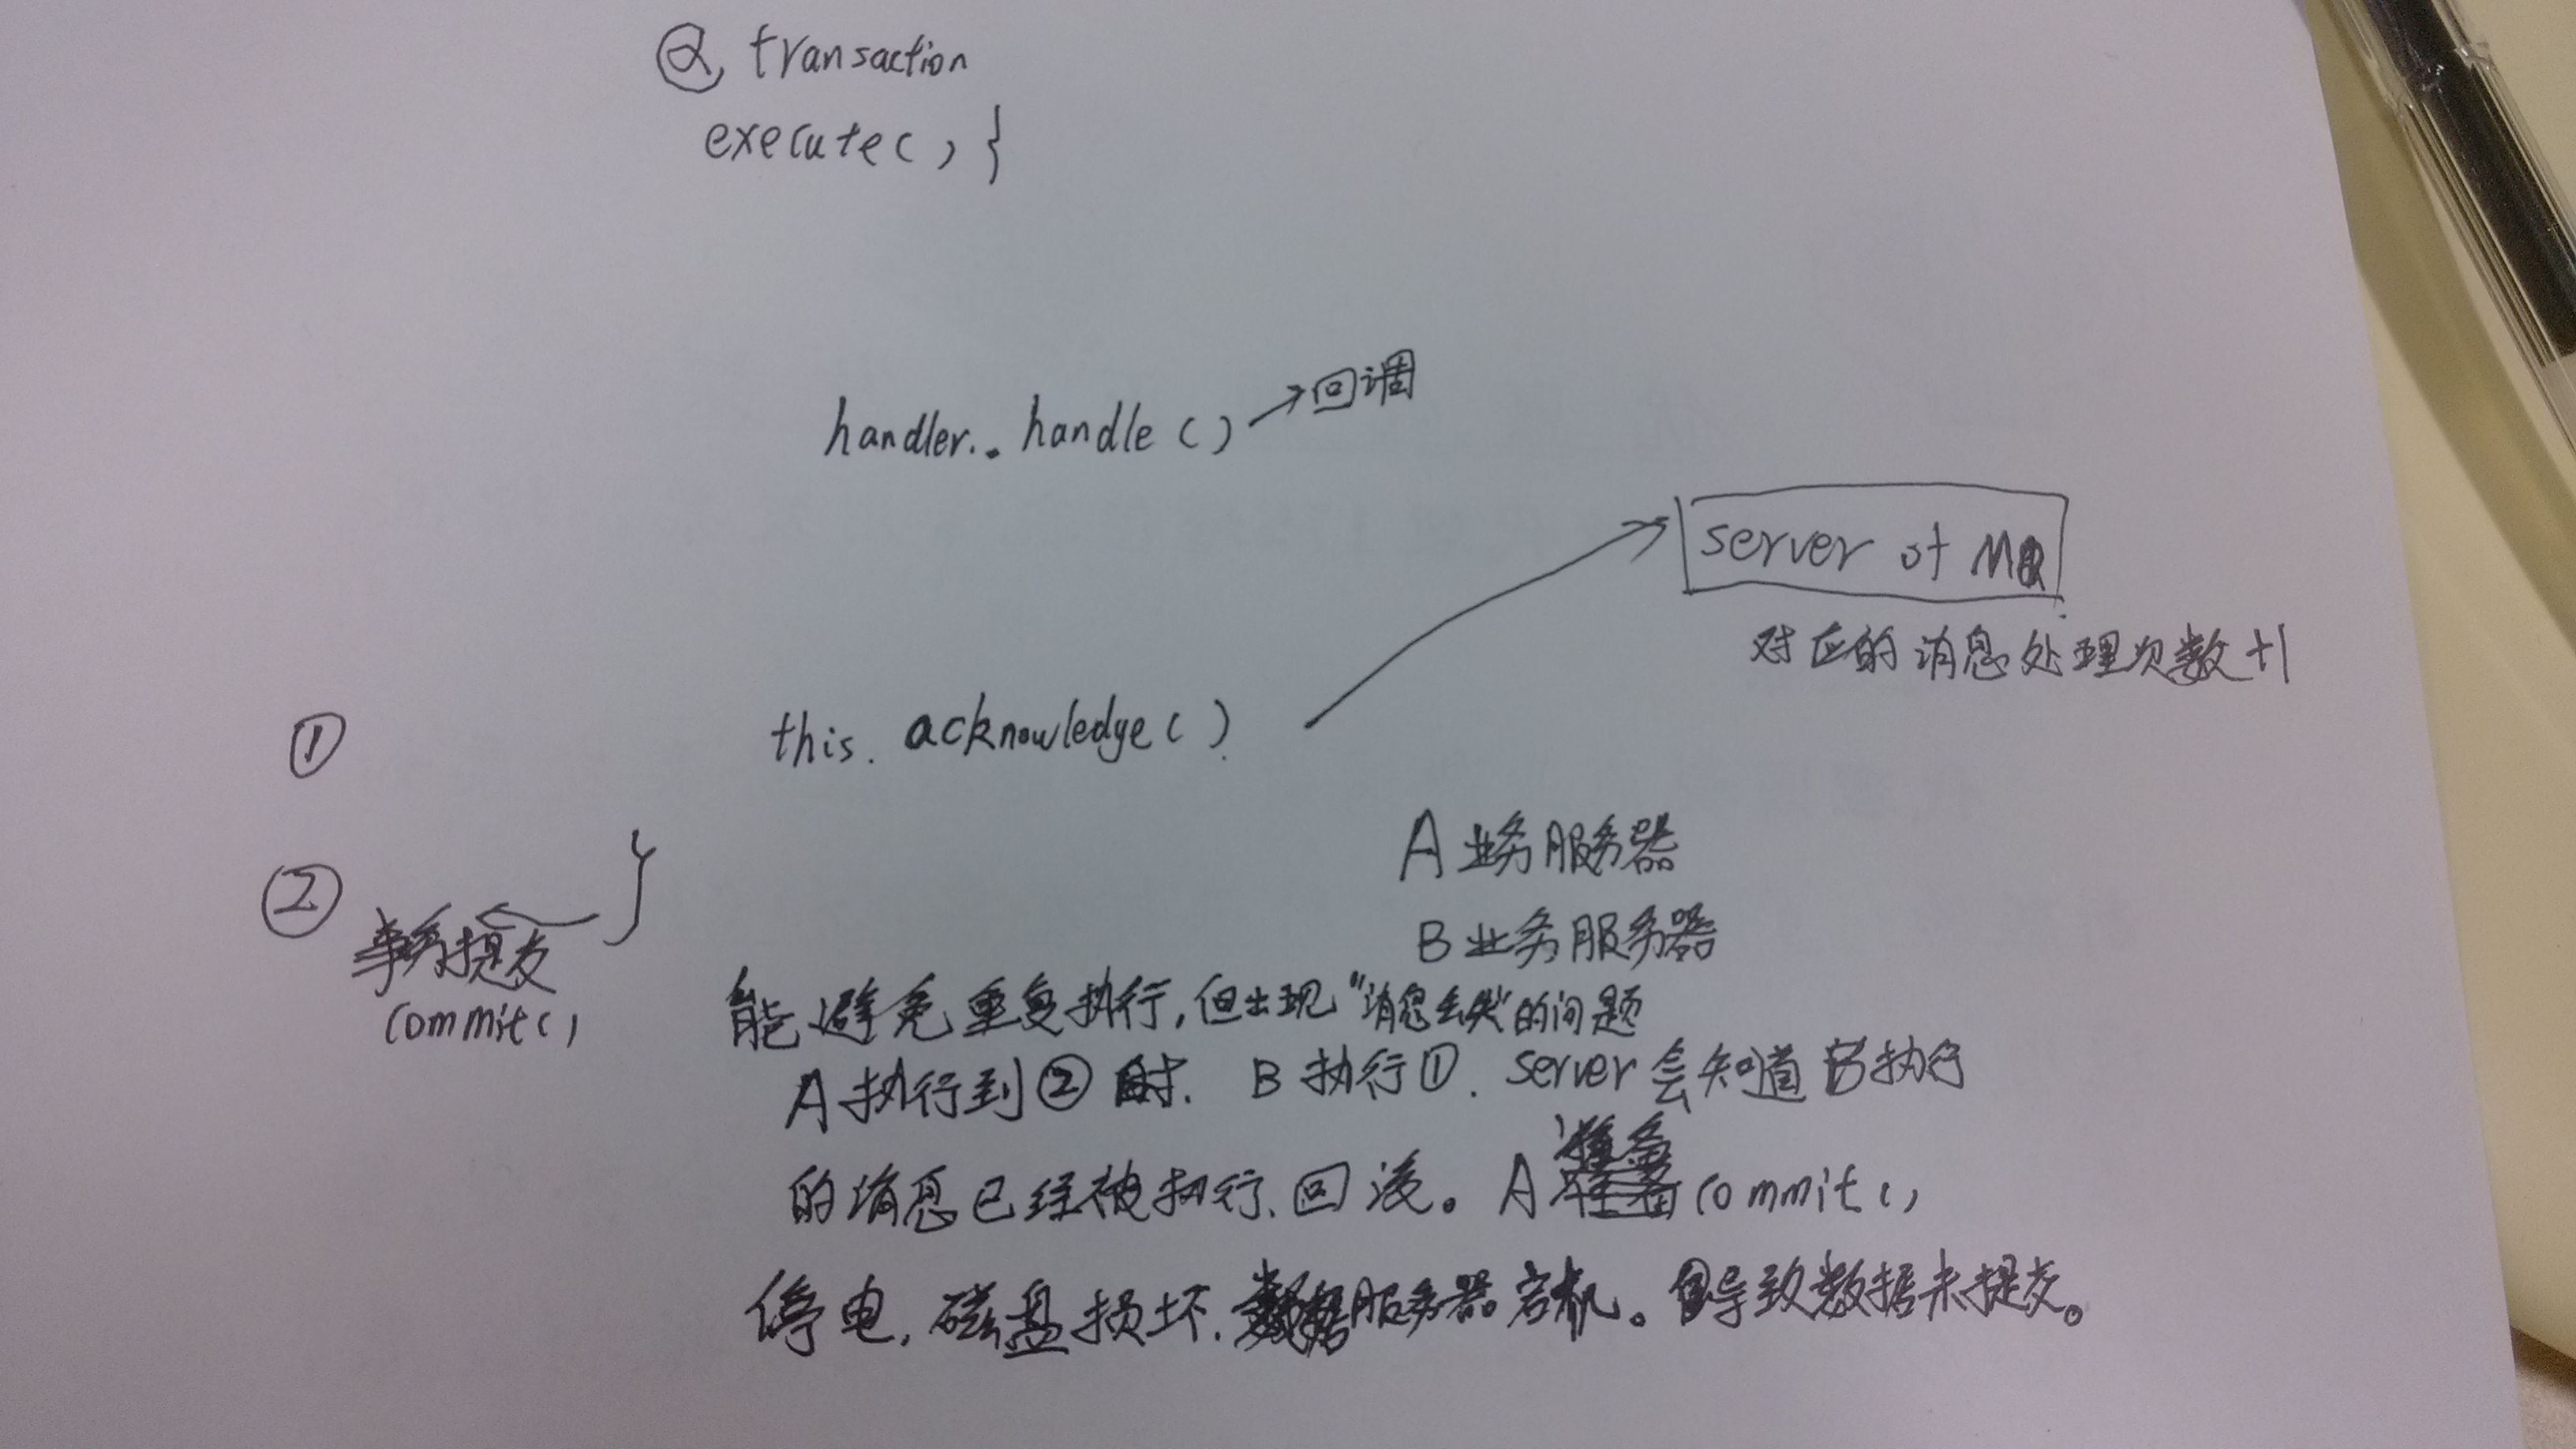 @ transaction
execute() {
handler.. handle() → 回调
server of MQ
对应的消息处理次数+1
① this. acknowledge()
}
②
事务提交
commit()
A 业务服务器
B 业务服务器
能避免重复执行,但出现"消息丢失"的问题
A 执行到②时. B 执行①. server会知道B执行
的消息已经被执行.回滚。A准备commit()
停电,磁盘损坏.服务器宕机。导致数据未提交。